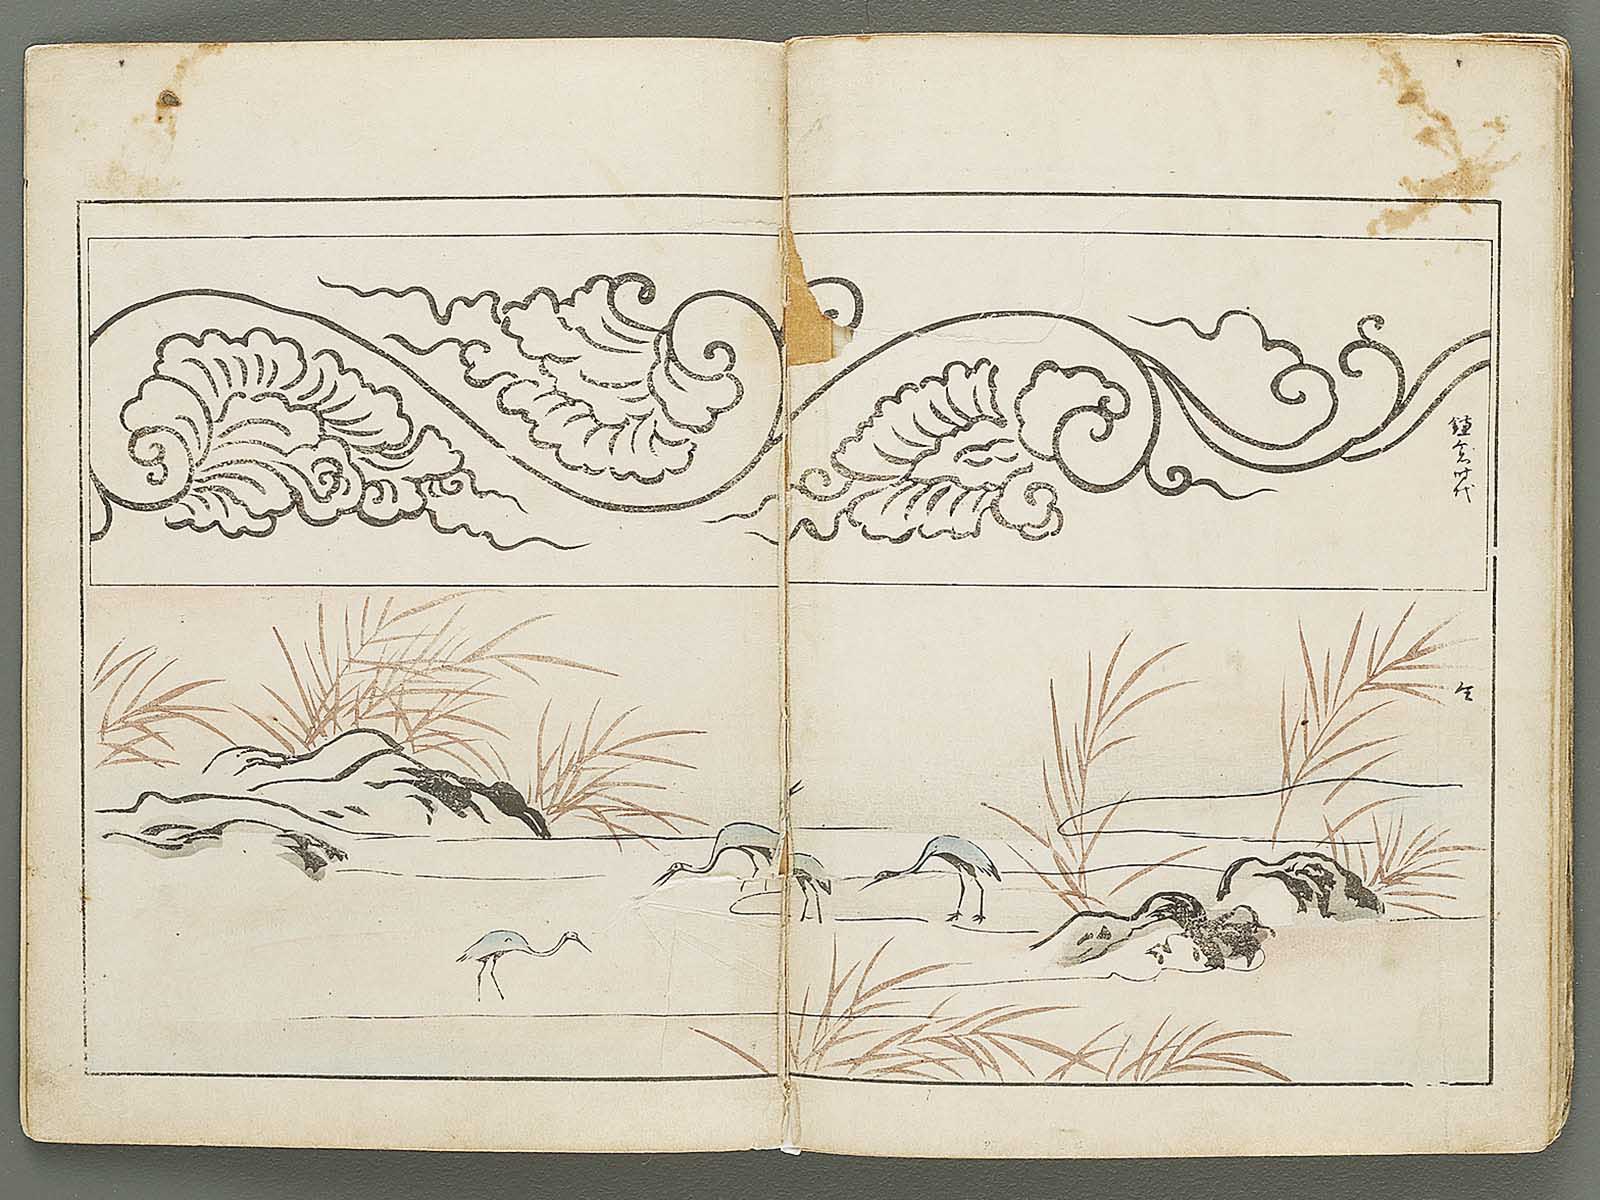 鎌倉時代
仝